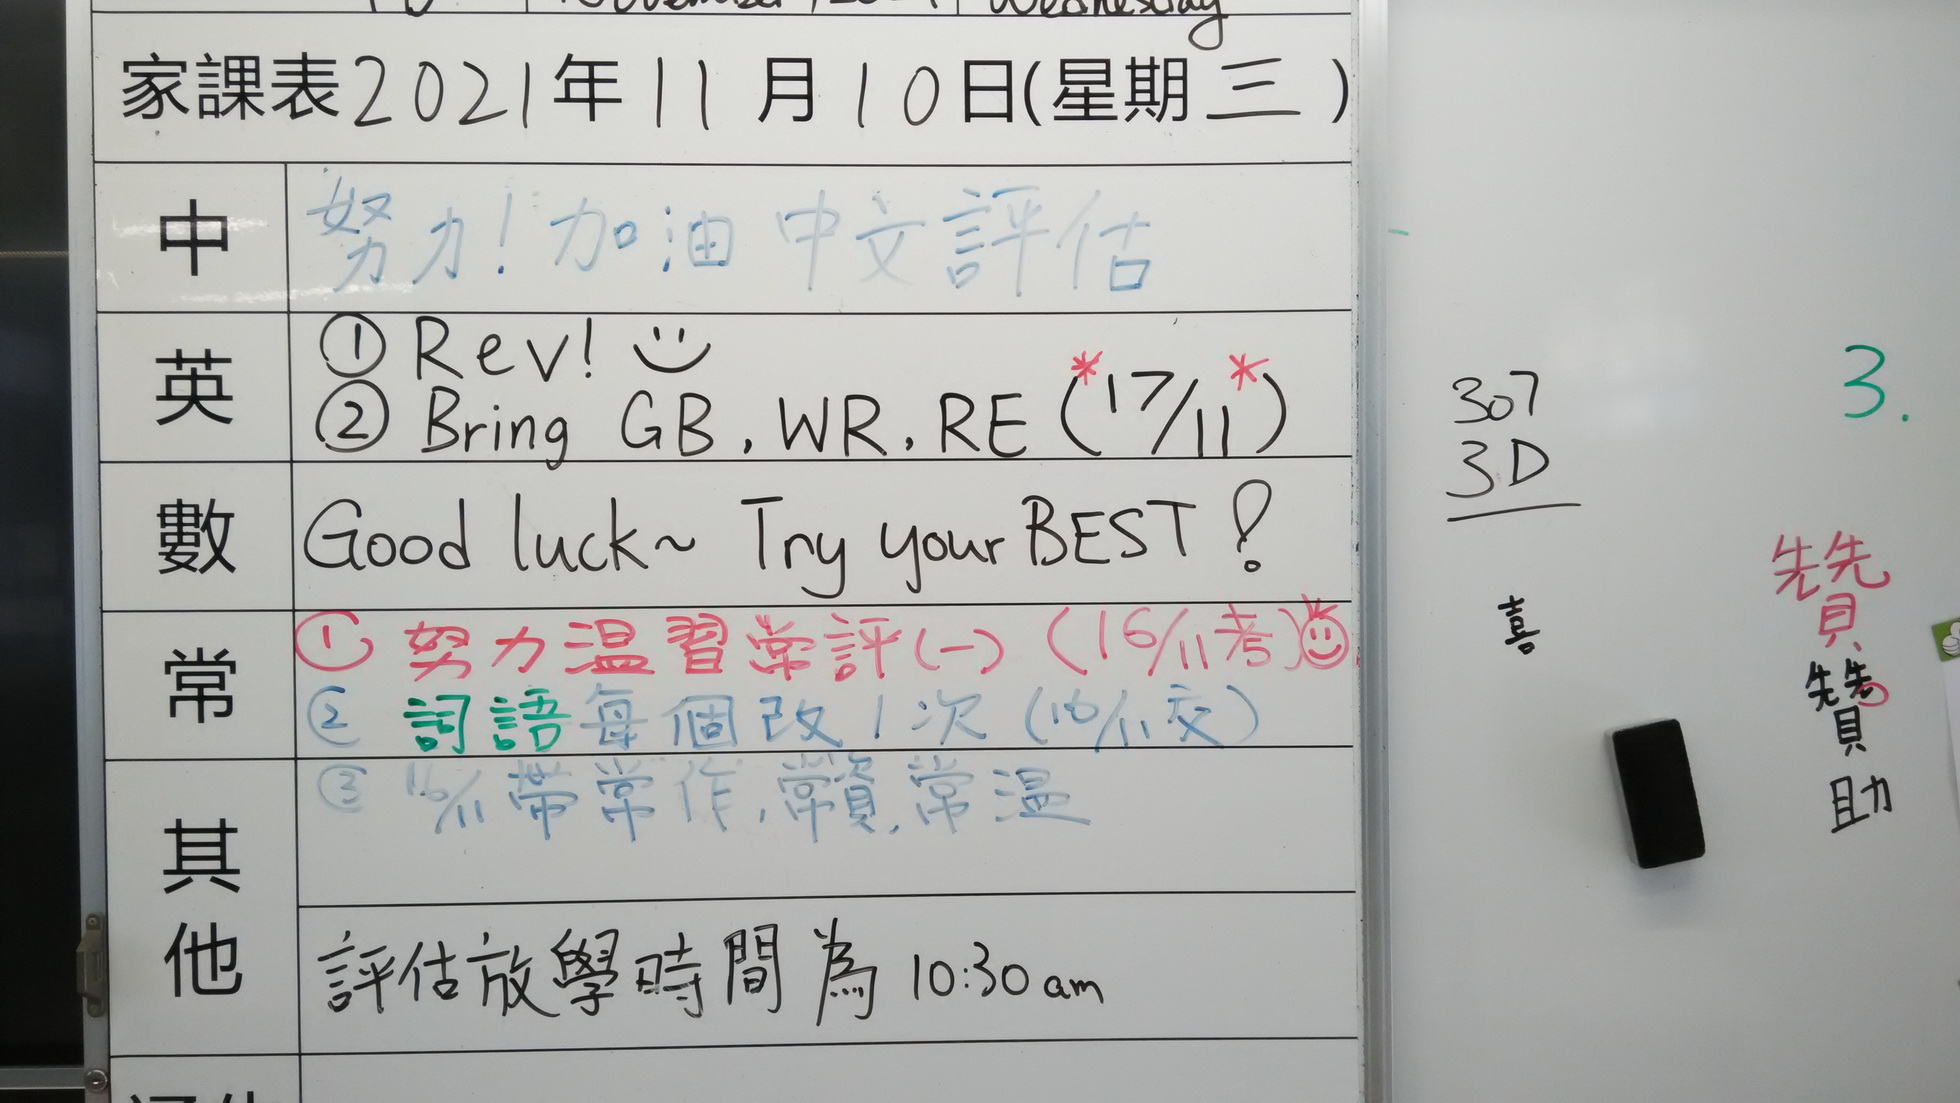 Wednesday
家課表2021年11月10日(星期三)
中
努力!加油 中文評估
英
① Rev!
② Bring GB, WR, RE (*17/11*)
數
Good luck~ Try your BEST!
常
① 努力温習常評(一) (16/11考)
② 詞語每個改1次 (16/11交)
其他
③ 16/11 帶常作,常資,常溫
評估放學時間為 10:30am
307
3D
喜
3.
贊
贊
助